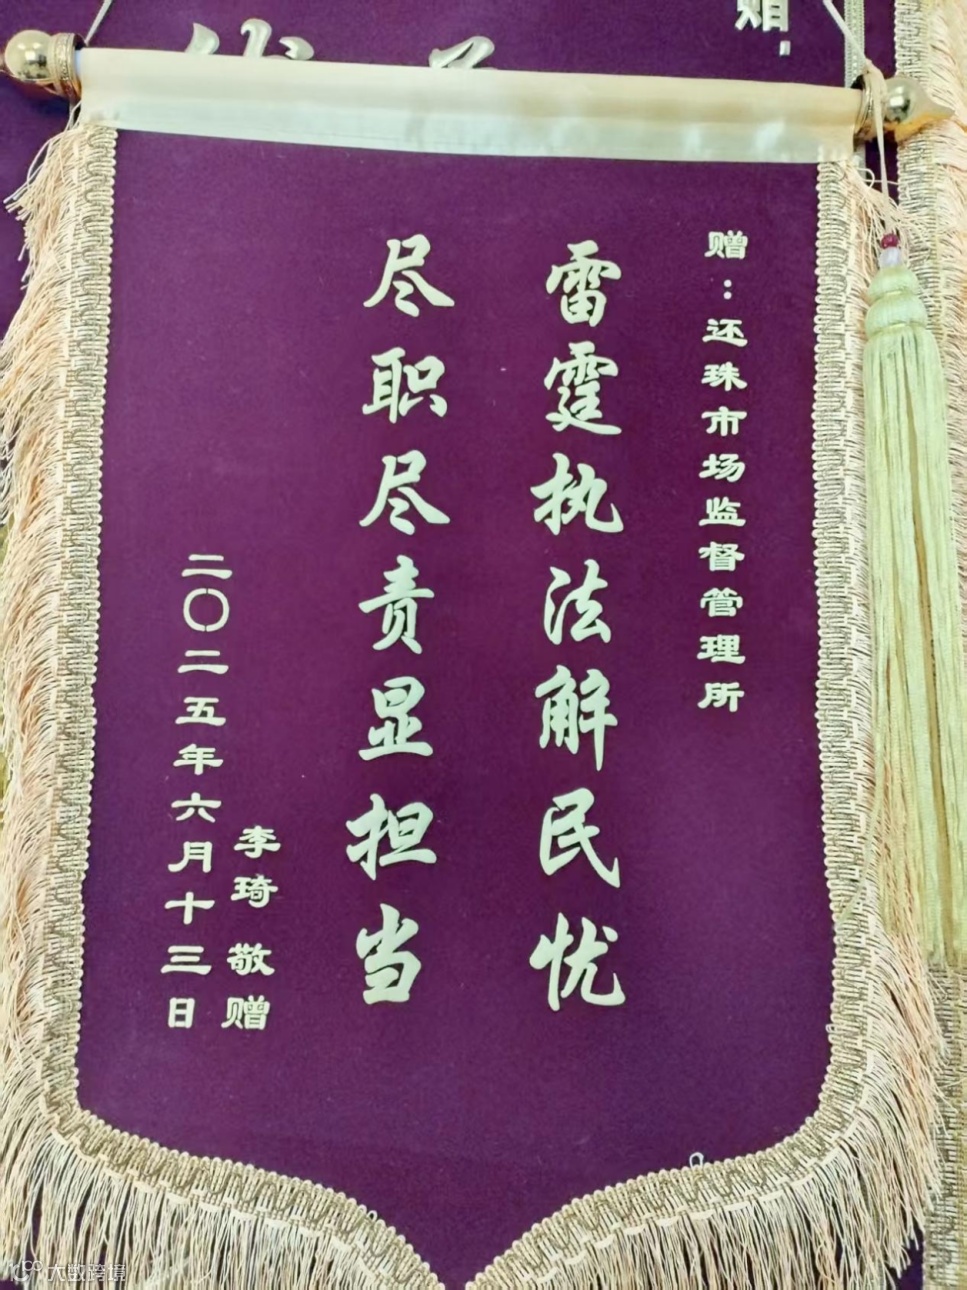 赠:还珠市场监督管理所
雷霆执法解民忧
尽职尽责显担当
李琦 敬赠
二〇二五年六月十三日
大数跨境